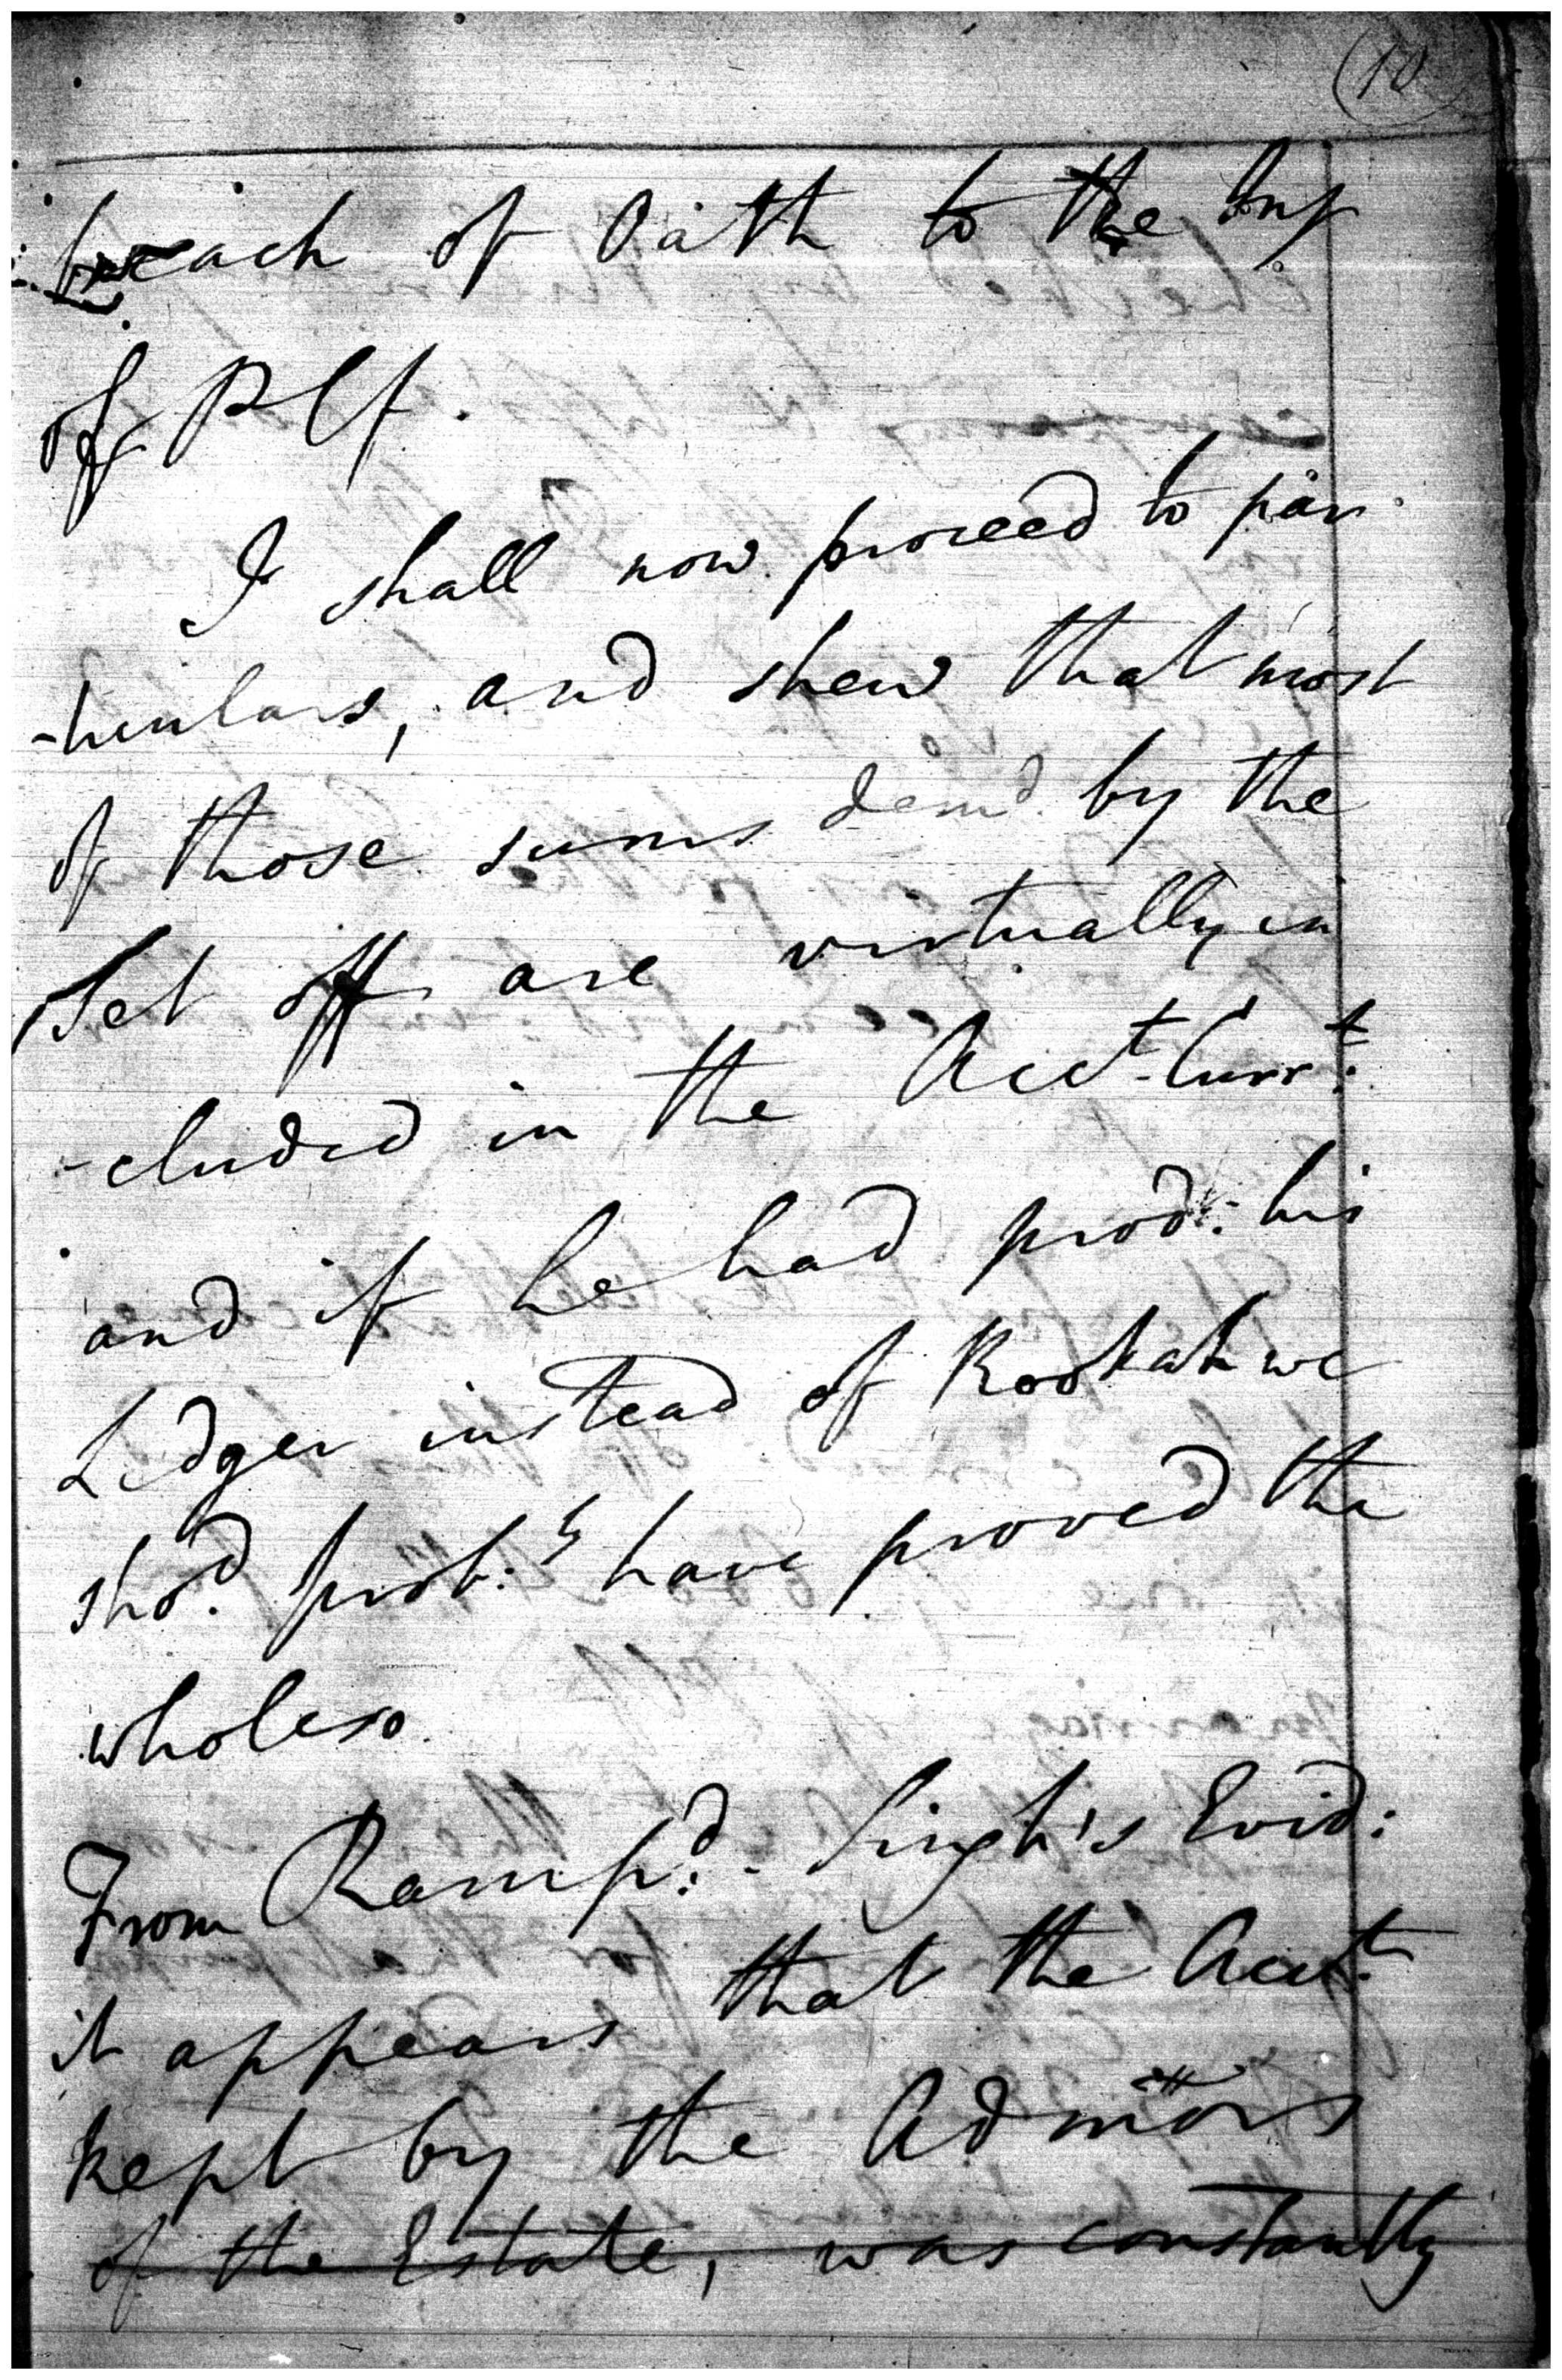 (10
breach of Oath to the Inf
of Plf.
I shall now proceed to par
-ticulars, and shew that most
of those sums dem.d by the
Set off are virtually in
-cluded in the Acct. Curr.t
and if he had prod: his
Ledger instead of Rookah we
sho.d prob.y have proved the
whole so.
From Ramp.d Singh's Evid:
it appears that the Acct.
kept by the Admors
of the Estate, was constantly